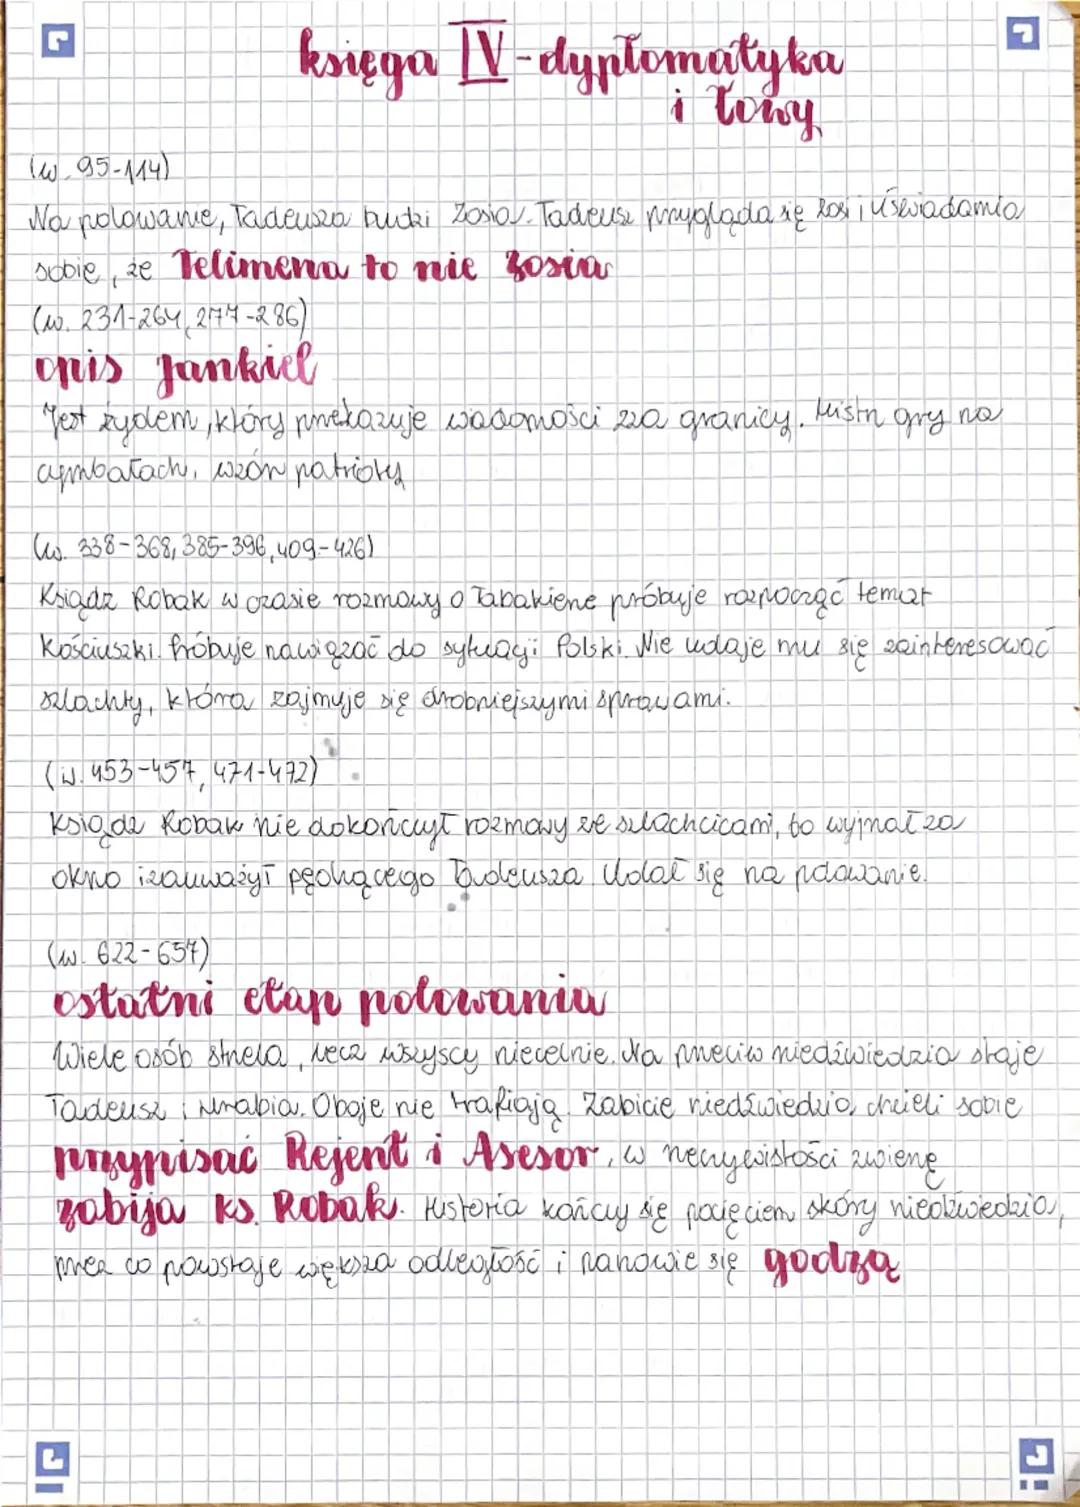 księga IV - dyplomatyka
i łowy
(w. 95-114)
Na polowanie, Tadeusza budzi Zosia. Tadeusz przygląda się Zosi i uświadamia
sobie, że Telimena to nie Zosia
(w. 231-264, 277-286)
opis Jankiel
Jest żydem, który przekazuje wiadomości zza granicy. Mistrz gry na
cymbałach, wzór patrioty
(w. 338-368, 385-396, 409-426)
Ksiądz Robak w czasie rozmowy o Tabakierze próbuje rozpocząć temat
Kościuszki. Próbuje nawiązać do sytuacji Polski. Nie udaje mu się zainteresować
szlachty, która zajmuje się drobniejszymi sprawami.
(w. 453-457, 471-472)
Ksiądz Robak nie dokończył rozmowy ze szlachcicami, bo wyjrzał za
okno i zauważył pędzącego Tadeusza. Udał się na polowanie.
(w. 622-657)
ostatni etap polowania
Wiele osób strzela, lecz wszyscy niecelnie. Na przeciw niedźwiedzia staje
Tadeusz i Hrabia. Oboje nie trafiają. Zabicie niedźwiedzia chcieli sobie
przypisać Rejent i Asesor, w rzeczywistości zwierzę
zabija ks. Robak. Historia kończy się pocięciem skóry niedźwiedzia,
przez co powstaje większa odległość i panowie się godzą